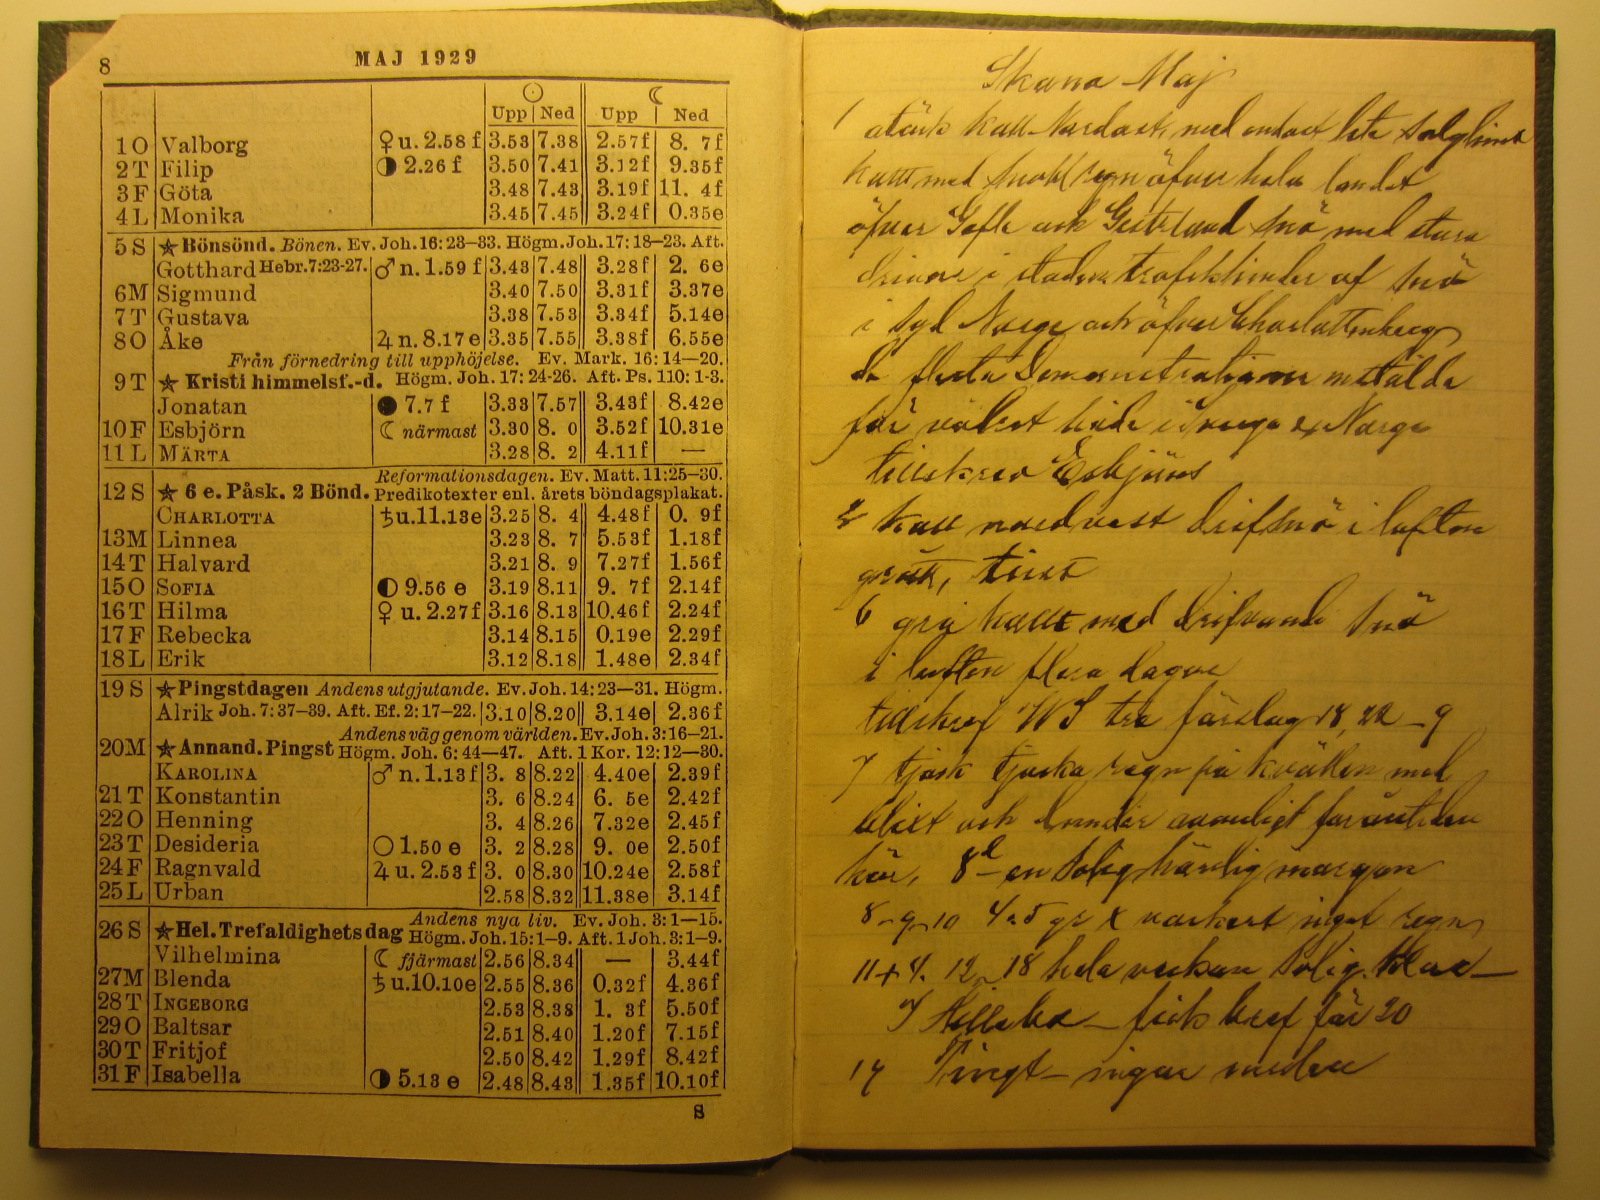 8
MAJ 1929
☉ ☾
Upp Ned Upp Ned
1 O Valborg ♀ u. 2.58 f 3.53 7.38 2.57f 8. 7f
2 T Filip ◑ 2.26 f 3.50 7.41 3.12f 9.35f
3 F Göta 3.48 7.43 3.19f 11. 4f
4 L Monika 3.45 7.45 3.24f 0.35e
5 S ★ Bönsönd. Bönen. Ev. Joh. 16: 23—33. Högm. Joh. 17: 18—23. Aft.
Gotthard Hebr. 7:23-27. ♂ n. 1.59 f 3.43 7.48 3.28f 2. 6e
6 M Sigmund 3.40 7.50 3.31f 3.37e
7 T Gustava 3.38 7.53 3.34f 5.14e
8 O Åke ♃ n. 8.17 e 3.35 7.55 3.38f 6.55e
Från förnedring till upphöjelse. Ev. Mark. 16: 14—20.
9 T ★ Kristi himmelsf.-d. Högm. Joh. 17: 24-26. Aft. Ps. 110: 1-3.
Jonatan ● 7.7 f 3.33 7.57 3.43f 8.42e
10 F Esbjörn ☾ närmast 3.30 8. 0 3.52f 10.31e
11 L MÄRTA 3.28 8. 2 4.11f —
Reformationsdagen. Ev. Matt. 11: 25—30.
12 S ★ 6 e. Påsk. 2 Bönd. Predikotexter enl. årets böndagsplakat.
CHARLOTTA ♄ u. 11.13e 3.25 8. 4 4.48f 0. 9f
13 M Linnea 3.23 8. 7 5.53f 1.18f
14 T Halvard 3.21 8. 9 7.27f 1.56f
15 O SOFIA ◐ 9.56 e 3.19 8.11 9. 7f 2.14f
16 T Hilma ♀ u. 2.27f 3.16 8.13 10.46f 2.24f
17 F Rebecka 3.14 8.15 0.19e 2.29f
18 L Erik 3.12 8.18 1.48e 2.34f
19 S ★ Pingstdagen Andens utgjutande. Ev. Joh. 14: 23—31. Högm.
Alrik Joh. 7: 37—39. Aft. Ef. 2: 17—22. 3.10 8.20 3.14e 2.36f
Andens väg genom världen. Ev. Joh. 3: 16—21.
20 M ★ Annand. Pingst Högm. Joh. 6: 44—47. Aft. 1 Kor. 12: 12—30.
KAROLINA ♂ n. 1.13 f 3. 8 8.22 4.40e 2.39f
21 T Konstantin 3. 6 8.24 6. 5e 2.42f
22 O Henning 3. 4 8.26 7.32e 2.45f
23 T Desideria ○ 1.50 e 3. 2 8.28 9. 0e 2.50f
24 F Ragnvald ♃ u. 2.53 f 3. 0 8.30 10.24e 2.58f
25 L Urban 2.58 8.32 11.38e 3.14f
Andens nya liv. Ev. Joh. 3: 1—15.
26 S ★ Hel. Trefaldighetsdag Högm. Joh. 15: 1—9. Aft. 1 Joh. 3: 1—9.
Vilhelmina ☾ fjärmast 2.56 8.34 — 3.44f
27 M Blenda ♄ u. 10.10e 2.55 8.36 0.32f 4.36f
28 T INGEBORG 2.53 8.38 1. 3f 5.50f
29 O Baltsar 2.51 8.40 1.20f 7.15f
30 T Fritjof 2.50 8.42 1.29f 8.42f
31 F Isabella ◑ 5.13 e 2.48 8.43 1.35f 10.10f
8
Maj
1 kall Nordost med endast lite solglimt
kallt med regn öfver hela landet
öfver Gefle och Gestrland snö med stora
drivor i staden trafikhinder af snö
i syd Norge och öfver Charlottenberg
de flesta Demonstrationer
för både i Sverge & Norge
tillskrev Esbjörns
2 kall nordvest drifsnö i luften
6 grå kallt med drifvande snö
i luften flera dagar
tillskref WS tre förslag 18, 22 - 9
7 regn på kvällen med
blixt och dunder
här, 8 - en solig härlig morgon
8-9-10 4 a 5 gr x vackert inget regn
11+4. 12-18 hela veckan solig
fick bref för 20
14 Tingt - ingen